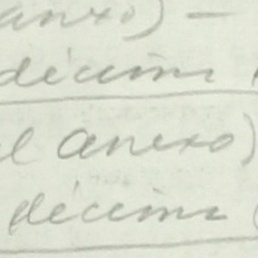 anexo) —
décima
el anexo)
décima (